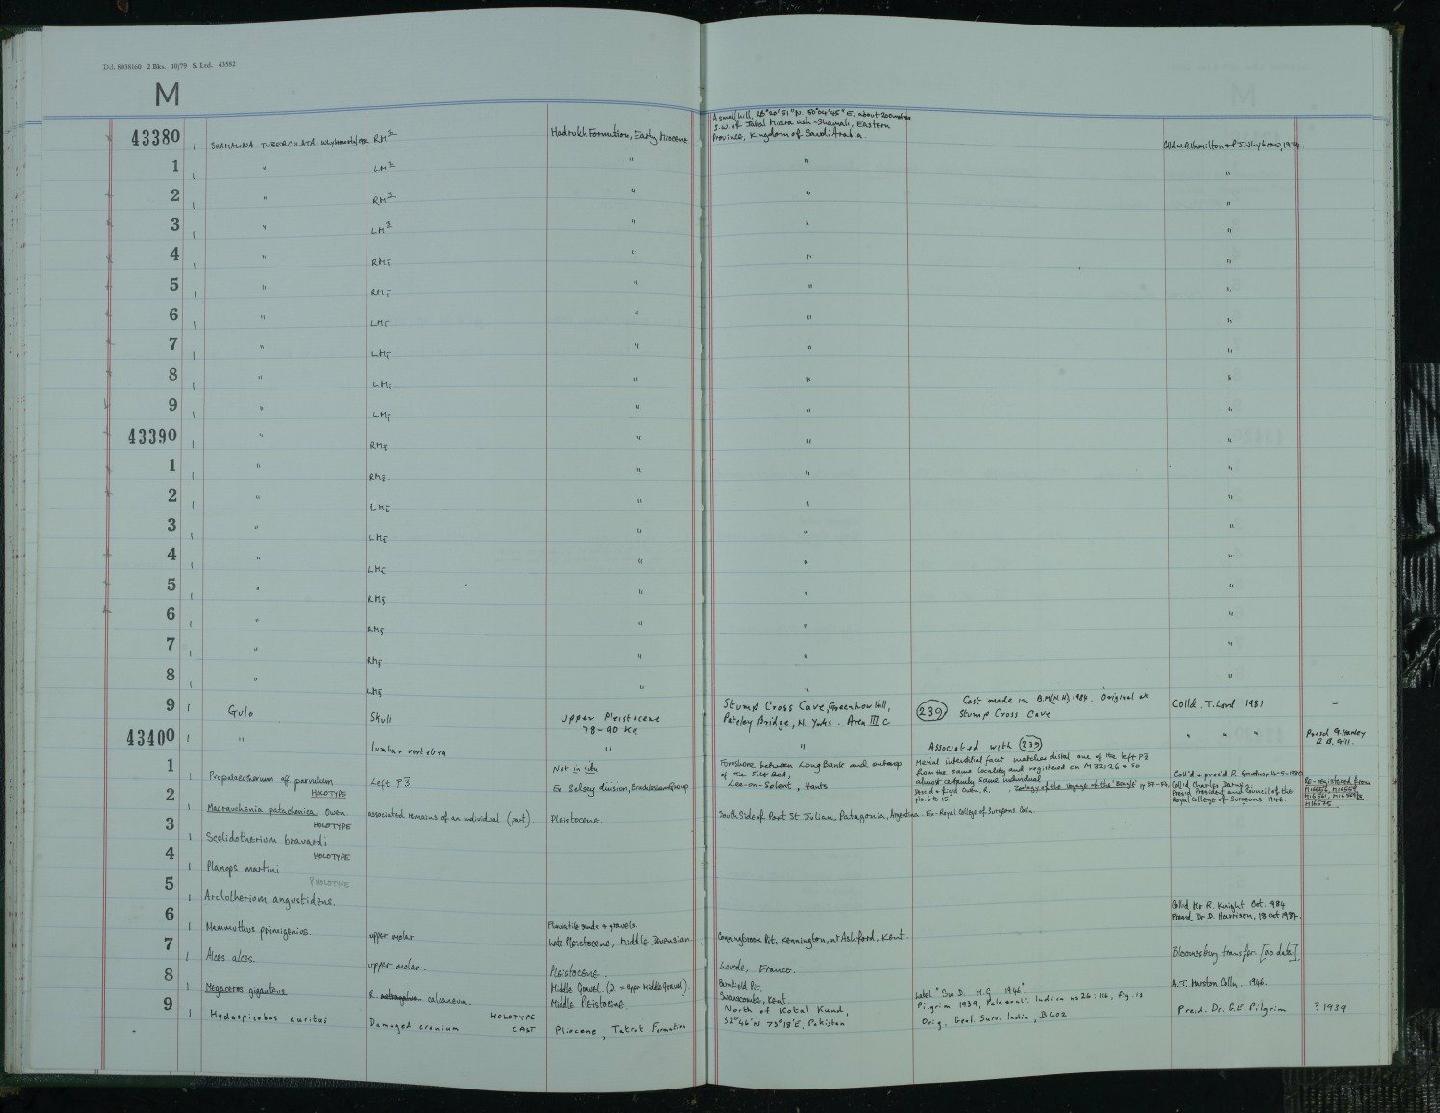 Dd. 8038160 2 Bks. 10/79 S. Ltd. 43582
M
43380 1 SHAMALINA TUBERCULATA Whybrow et al, 1982 RM2 Hadrukh Formation, Early Miocene A small hill, 28°20'51"N. 50°04'45"E, about 200 metres
S.W. of Jabal Midra ash-Shamali, Eastern
Province, Kingdom of Saudi Arabia. Colld. W.R. Hamilton & P.J. Whybrow, 1974
1 1 " LM2 " " "
2 1 " RM2 " " "
3 1 " LM2 " " "
4 1 " RM1 " " "
5 1 " RM1 " " "
6 1 " LM1 " " "
7 1 " LM1 " " "
8 1 " LM1 " " "
9 1 " LM1 " " "
43390 1 " RM " " "
1 1 " RM " " "
2 1 " LM " " "
3 1 " LM " " "
4 1 " LM " " "
5 1 " RM " " "
6 1 " RM " " "
7 1 " RM " " "
8 1 " LM " " "
9 1 Gulo Skull Upper Pleistocene
78-90 Ka Stump Cross Cave, Greenhow Hill,
Pateley Bridge, N. Yorks. Area III C (239) Cast made in B.M.(N.H) 1984. Original at
Stump Cross Cave Colld. T. Lord 1981 -
43400 1 " lumbar vertebra " " Associated with (239) " " " Presd G. Hanley
& B. Gill.
1 1 Propalaeotherium aff parvulum Left P3 Not in situ
Ex Selsey division, Bracklesham Group Foreshore between Long Bank and outcrop
of the Silt Bed,
Lee-on-Solent, Hants Mesial interstitial facet matches distal one of the left P3
from the same locality and registered on M 32126 & so
almost certainly same individual Coll'd & pres'd R.
2 1 HOLOTYPE
Macrauchenia patachonica Owen associated remains of an individual (part). Pleistocene. South Side of Port St Julian, Patagonia, Argentina Desd & figd Owen, R. Zoology of the Voyage of the 'Beagle'
Ex-Royal College of Surgeons Coln. Colld Charles Darwin
Presd President and Council of the
Royal College of Surgeons 1946. Re-registered from
3 1 HOLOTYPE
Scelidotherium bravardi
4 1 HOLOTYPE
Planops martini
5 1 ?HOLOTYPE
Arctotherium angustidens.
6 1 Mammuthus primigenius. upper molar Fluviatile sands & gravels.
Late Pleistocene, Middle Devensian Conningbrook Pit, Kennington, nr Ashford, Kent. Colld Mr R. Knight Oct. 984
Presd. Dr D. Harrison, 18 Oct 1984.
7 1 Alces alces. upper molar. Pleistocene. France. Bloomsbury transfer [no data]
8 1 Megaceros giganteus R. astragalus calcaneum. Middle Gravel. (? = Upper Middle Gravel).
Middle Pleistocene Barnfield Pit,
Swanscombe, Kent. Label "Sw D. M.G 1946" A.T. Marston Colln. 1946.
9 1 Hydaspicobus auritus HOLOTYPE
Damaged cranium CAST Pliocene, Tatrot Formation North of Kotal Kund,
32°46'N 73°18'E, Pakistan Pilgrim 1939, Palaeont. Indica no 26: 116, fig. 13
Orig. Geol. Surv. India, B602 Presd. Dr. G.E Pilgrim ? 1939